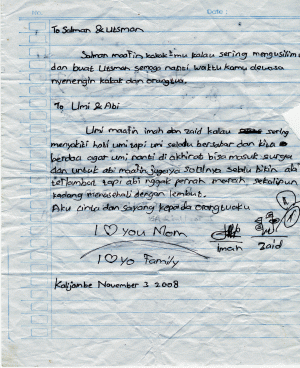 To Salman & Utsman
Salman maafin kakak²mu kalau sering mengusilim
dan buat Utsman semoga nanti waktu kamu dewasa
nyenengin kakak dan orangtua.
To Umi & Abi
Umi maafin imah dan zaid kalau sering
menyakiti hati umi tapi umi selalu bersabar dan bisa
berdoa agar umi nanti di akhirat bisa masuk surga
dan untuk abi maafin jugaya soalnya selalu bikin abi
terlambat tapi abi nggak pernah marah sekalipun
kadang menasehati dengan lembut.
Aku cinta dan sayang kepada orangtuaku
I ♡ You Mom
I ♡ Yo Family
Imah Zaid
Kalijambe November 3 2008